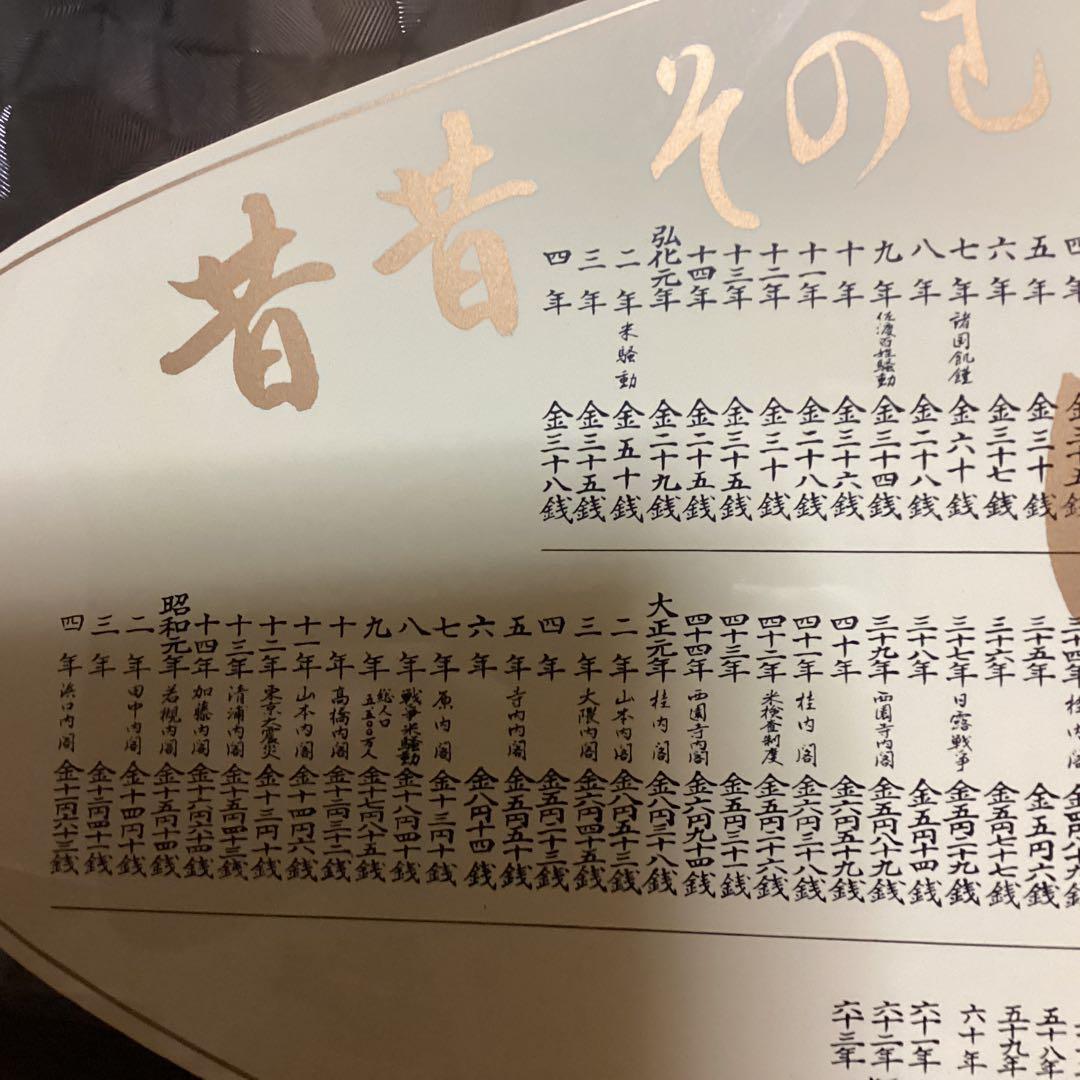 その
昔
昔
五年 金三十銭
六年 金三十七銭
七年 諸国飢饉 金六十銭
八年 金二十八銭
九年 佐渡百姓騒動 金三十四銭
十年 金三十六銭
十一年 金二十八銭
十二年 金三十銭
十三年 金三十五銭
十四年 金二十五銭
弘化元年 金二十九銭
二年 米騒動 金五十銭
三年 金三十五銭
四年 金三十八銭
三十五年 金五円六銭
三十六年 金五円七十七銭
三十七年 日露戦争 金五円二十九銭
三十八年 金五円十四銭
三十九年 西園寺内閣 金五円八十九銭
四十年 金六円五十九銭
四十一年 桂内閣 金六円三十八銭
四十二年 米検査制度 金五円二十六銭
四十三年 金五円三十一銭
四十四年 西園寺内閣 金六円九十四銭
大正元年 桂内閣 金八円三十八銭
二年 山本内閣 金八円五十三銭
三年 大隈内閣 金六円四十五銭
四年 金五円二十三銭
五年 寺内内閣 金五円五十銭
六年 金八円十四銭
七年 原内閣 金十三円十銭
八年 戦争米騒動 金十八円四十銭
九年 総人口五五〇〇万人 金十七円八十五銭
十年 高橋内閣 金十二円三十二銭
十一年 山本内閣 金十四円六銭
十二年 東京大震災 金十三円十銭
十三年 清浦内閣 金十五円四十三銭
十四年 加藤内閣 金十六円六十四銭
昭和元年 若槻内閣 金十五円四十四銭
二年 田中内閣 金十四円十銭
三年 金十二円四十一銭
四年 浜口内閣 金十一円六十三銭
五十八年
五十九年
六十年
六十一年
六十二年
六十三年